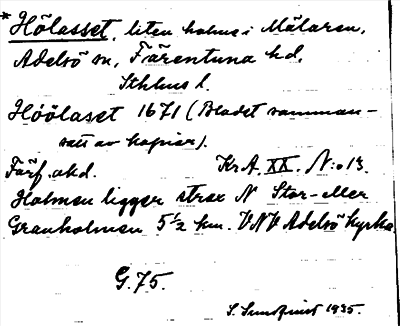 *Hölasset, liten holme i Mälaren,
Adelsö sn, Färentuna hd,
Sthlms l.
Höölaset 1671 (Bladet samman-
satt av kopior).
Färf. okd. KrA. XX. N:o 13.
Holmen ligger strax N Stor- eller
Granholmen 5 ½ km. VNV Adelsö kyrka.
G. 75.
S. Sundqvist 1935.